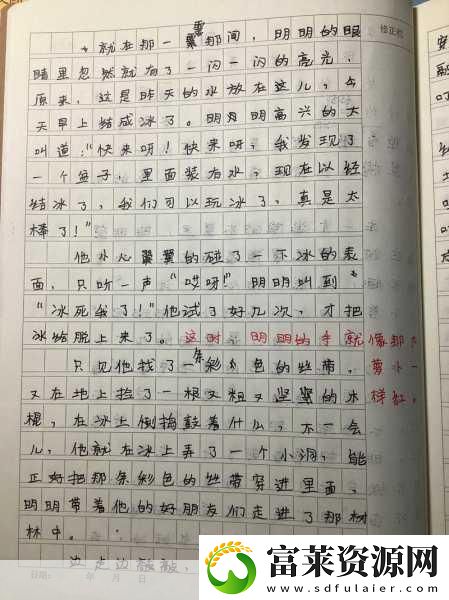 就在那一霎那间，明明的眼
睛里忽然就有了一闪一闪的亮光，
原来，这是昨天的水放在这儿，今
天早上结成冰了。明明高兴的大
叫道："快来呀！快来呀，我发现了
一个盆子，里面装有水，现在以经
结冰了，我们可以玩冰了，真是太
棒了！"
他小心翼翼的碰了一下冰的表
面，只听一声"哎呀！"明明叫到
"冰死我了！"他试了好几次，才把
冰给脱上来了。这时，明明的手就像那
剪水一
样红，
只见他找了一条彩色的丝带，
又在地上捡了一根又粗又坚蜜的木
棍，在冰上倒捣鼓着什么，不一会
儿，他就在冰上弄了一个小洞，能
正好把那条彩色的丝带穿进里面，
明明带着他的好朋友们走进了那树
林中。
边走边敲敲，
修正栏
日期： 年 月 日
富莱资源网
www.sdfulaier.com